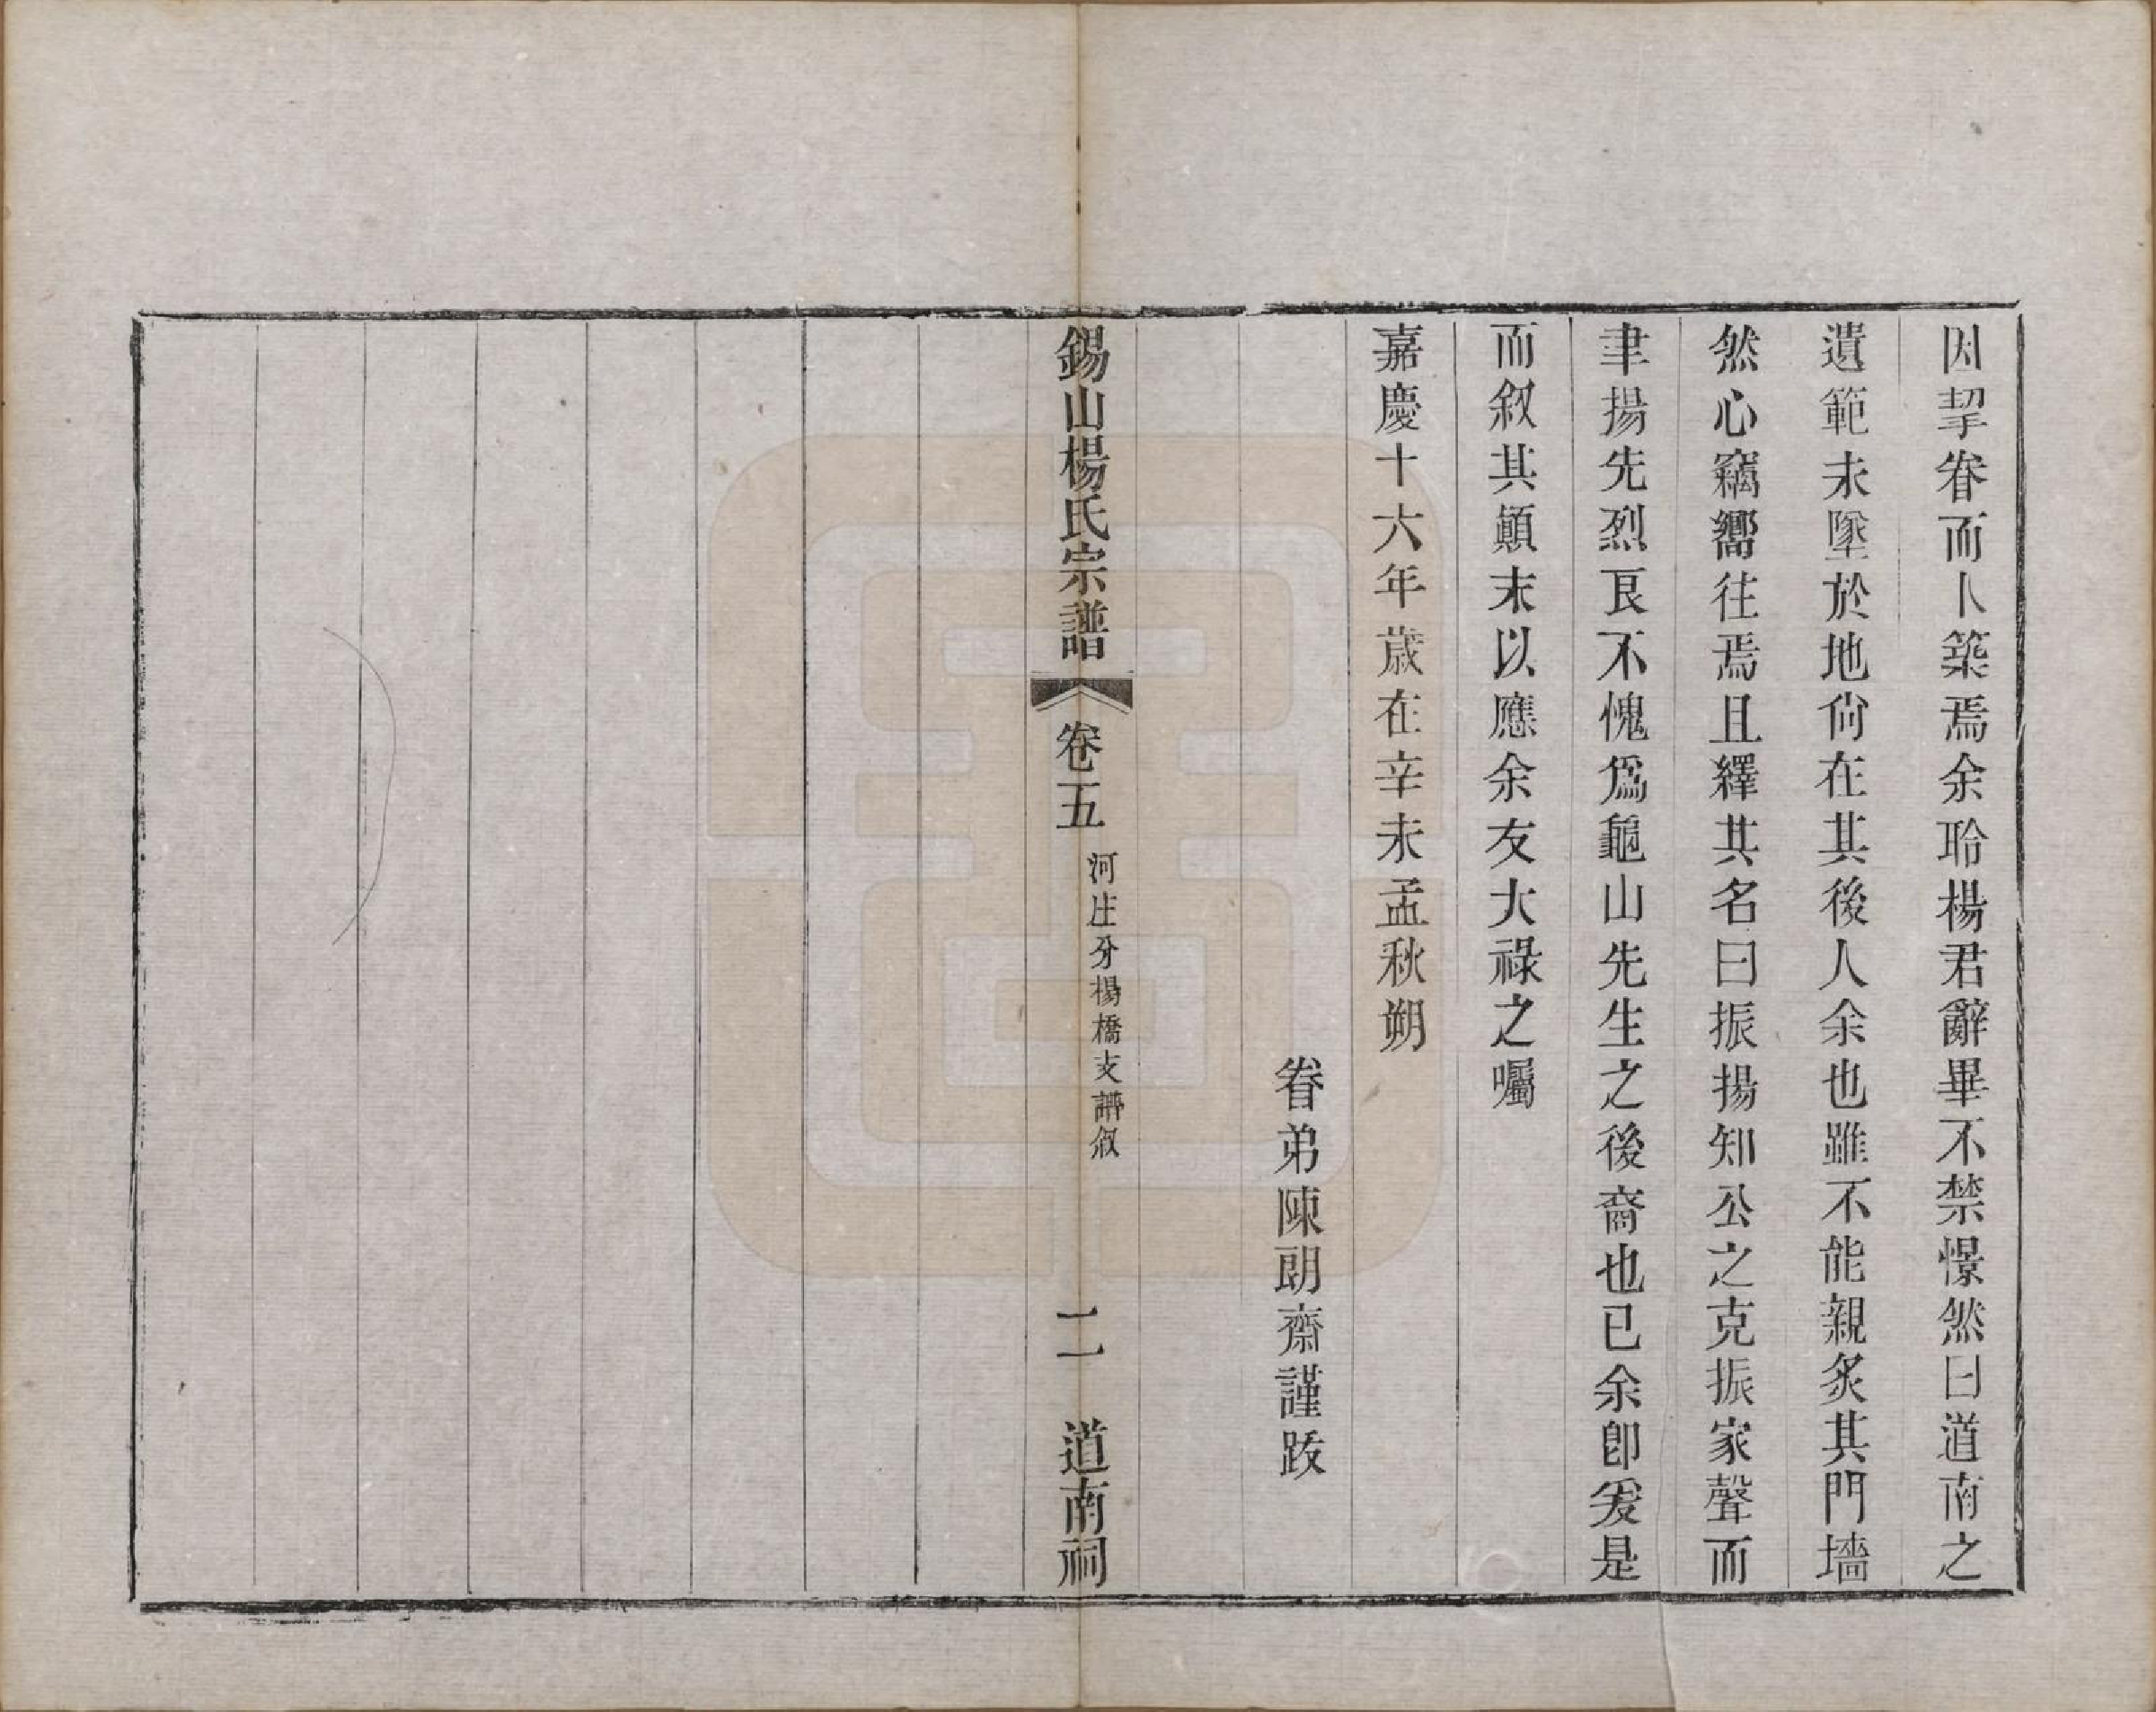 因挈眷而卜築焉余聆楊君辭畢不禁憬然曰道南之
遺範未墜於地尙在其後人余也雖不能親炙其門墻
然心竊嚮往焉且繹其名曰振揚知公之克振家聲而
聿揚先烈良不愧爲龜山先生之後裔也已余卽爰是
而叙其顚末以應余友大祿之囑
嘉慶十六年歲在辛未孟秋朔
眷弟陳朗齋謹跋
錫山楊氏宗譜 卷五 河庄分楊橋支譜叙 二 道南祠